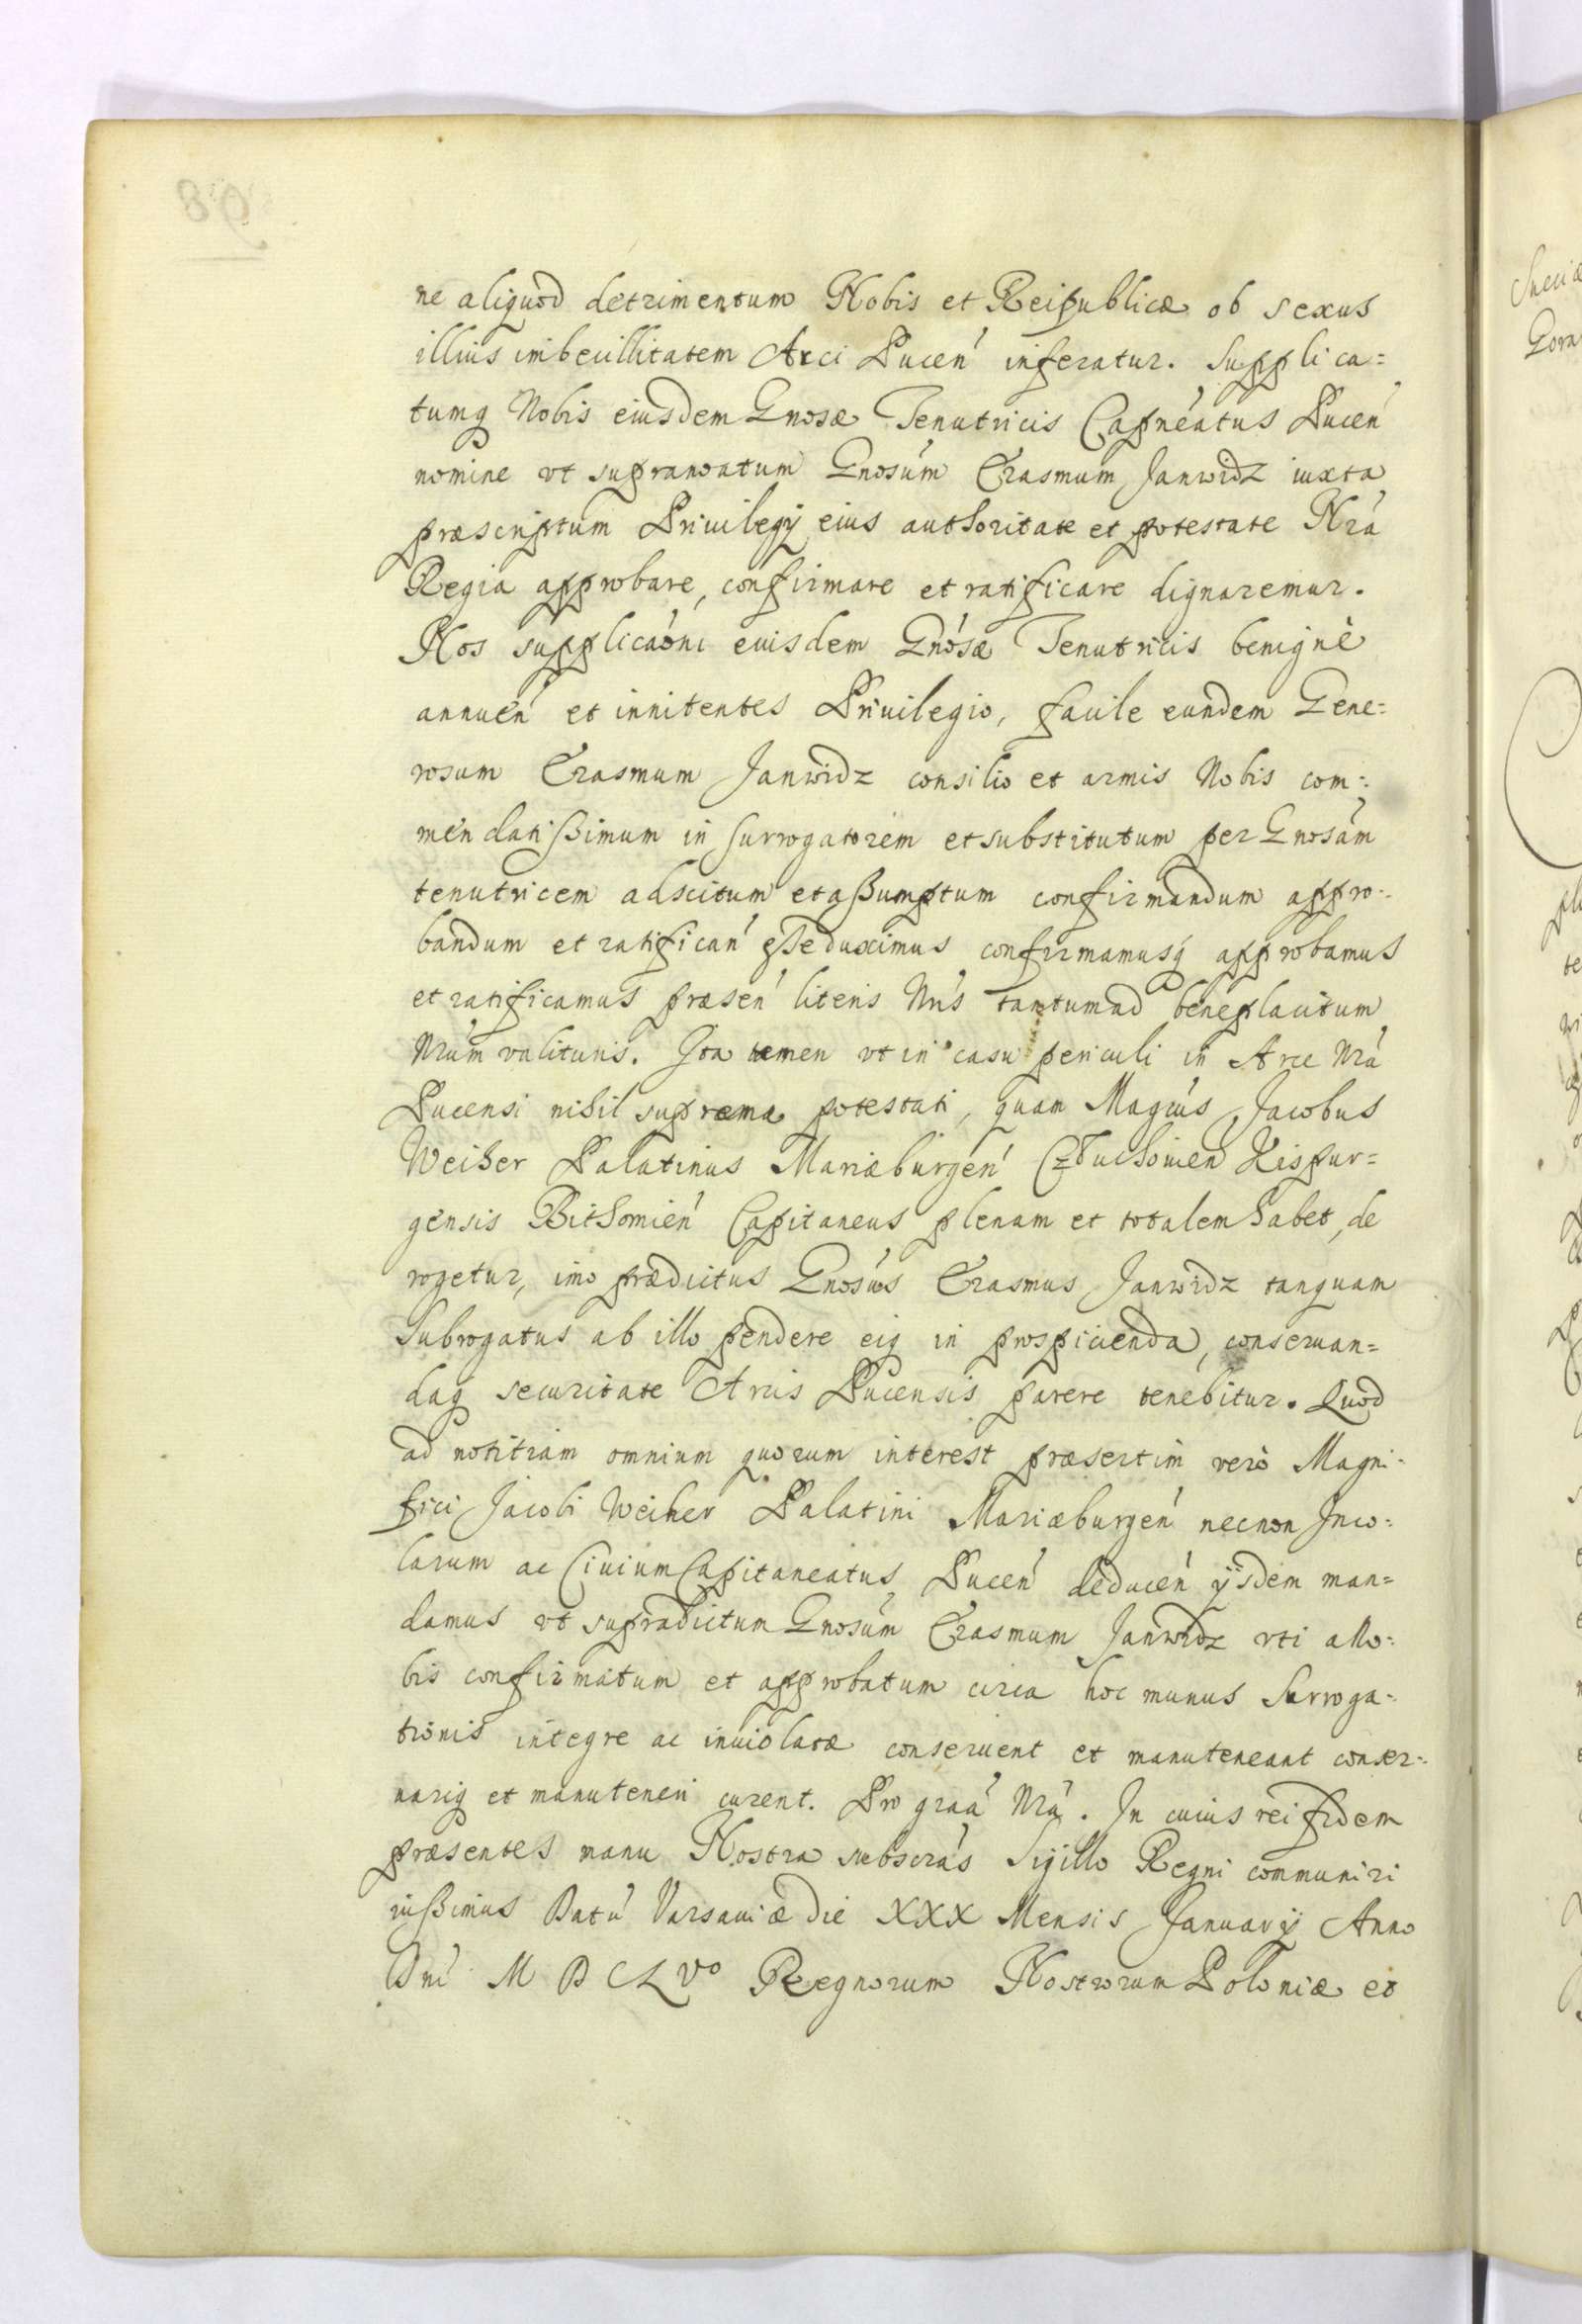 ne aliquod detrimentum Nobis et Reipublicæ ob sexus
illius imbecillitatem Arci Puceń inferatur. Supplica=
tumq Nobis eiusdem Gnosæ Tenutricis Capneátus Puceń
nomine vt supranoatum Gnosúm Erasmum Janwidz iuxta
præscriptum Priuilegÿ eius authoritate et potestate Nrá
Regia approbare, confirmare et ratificare dignaremur.
Nos supplicaóni euisdem Gnósæ Tenutricis benignè
annueń et innitentes Priuilegio, facile eundem Gene=
rosum Erasmum Janwidz consilio et armis Nobis com=
mendatißimum in Surrogatorem et substitutum per Gnosám
tenutricem adscitum et aßumptum confirmandum appro=
bandum et ratificań eße duximus confirmamusq́ approbamus
et ratificamus præseń literis Nrı́s tantum ad beneplacitum
Nrúm valituris. Ita tamen vt in casu periculi in Arce Nrá
Pucensi nihil supremæ potestati, quam Magcu̇s Jacobus
Weiher Palatinus Mariæburgeń Cztuchouien Kispur=
gensis Bithomień Capitaneus plenam et totalem habet, de
rogetur, imo prædictus Gnosús Erasmus Janwidz tanquam
Subrogatus ab illo pendere eiq in prospicienda, conseruan=
daq securitate Arcis Pucensis parere tenebitur. Quod
ad notitiam omnium quorum interest præsertim verò Magni=
fici Jacobi Weiher Palatini Mariæburgeń necnon Inco=
larum ac Ciuium Capitaneatus Puceń deduceń ÿsdem man=
damus vt supradictum Gnosúm Erasmum Janwidz vti a No=
bis confirmatum et approbatum circa hoc munus Surroga=
tionis integre ac inuiolatæ conseruent et manuteneant conser=
uariq et manuteneri curent. Pro graá Nrá. In cuius rei fidem
præsentes manu Nostra subscrás Sigillo Regni communiri
iußimus Datú Varsauiæ die XXX Mensis Januarÿ Anno
Dnı́ M D C L Vo Regnorum Nostrorum Poloniæ et